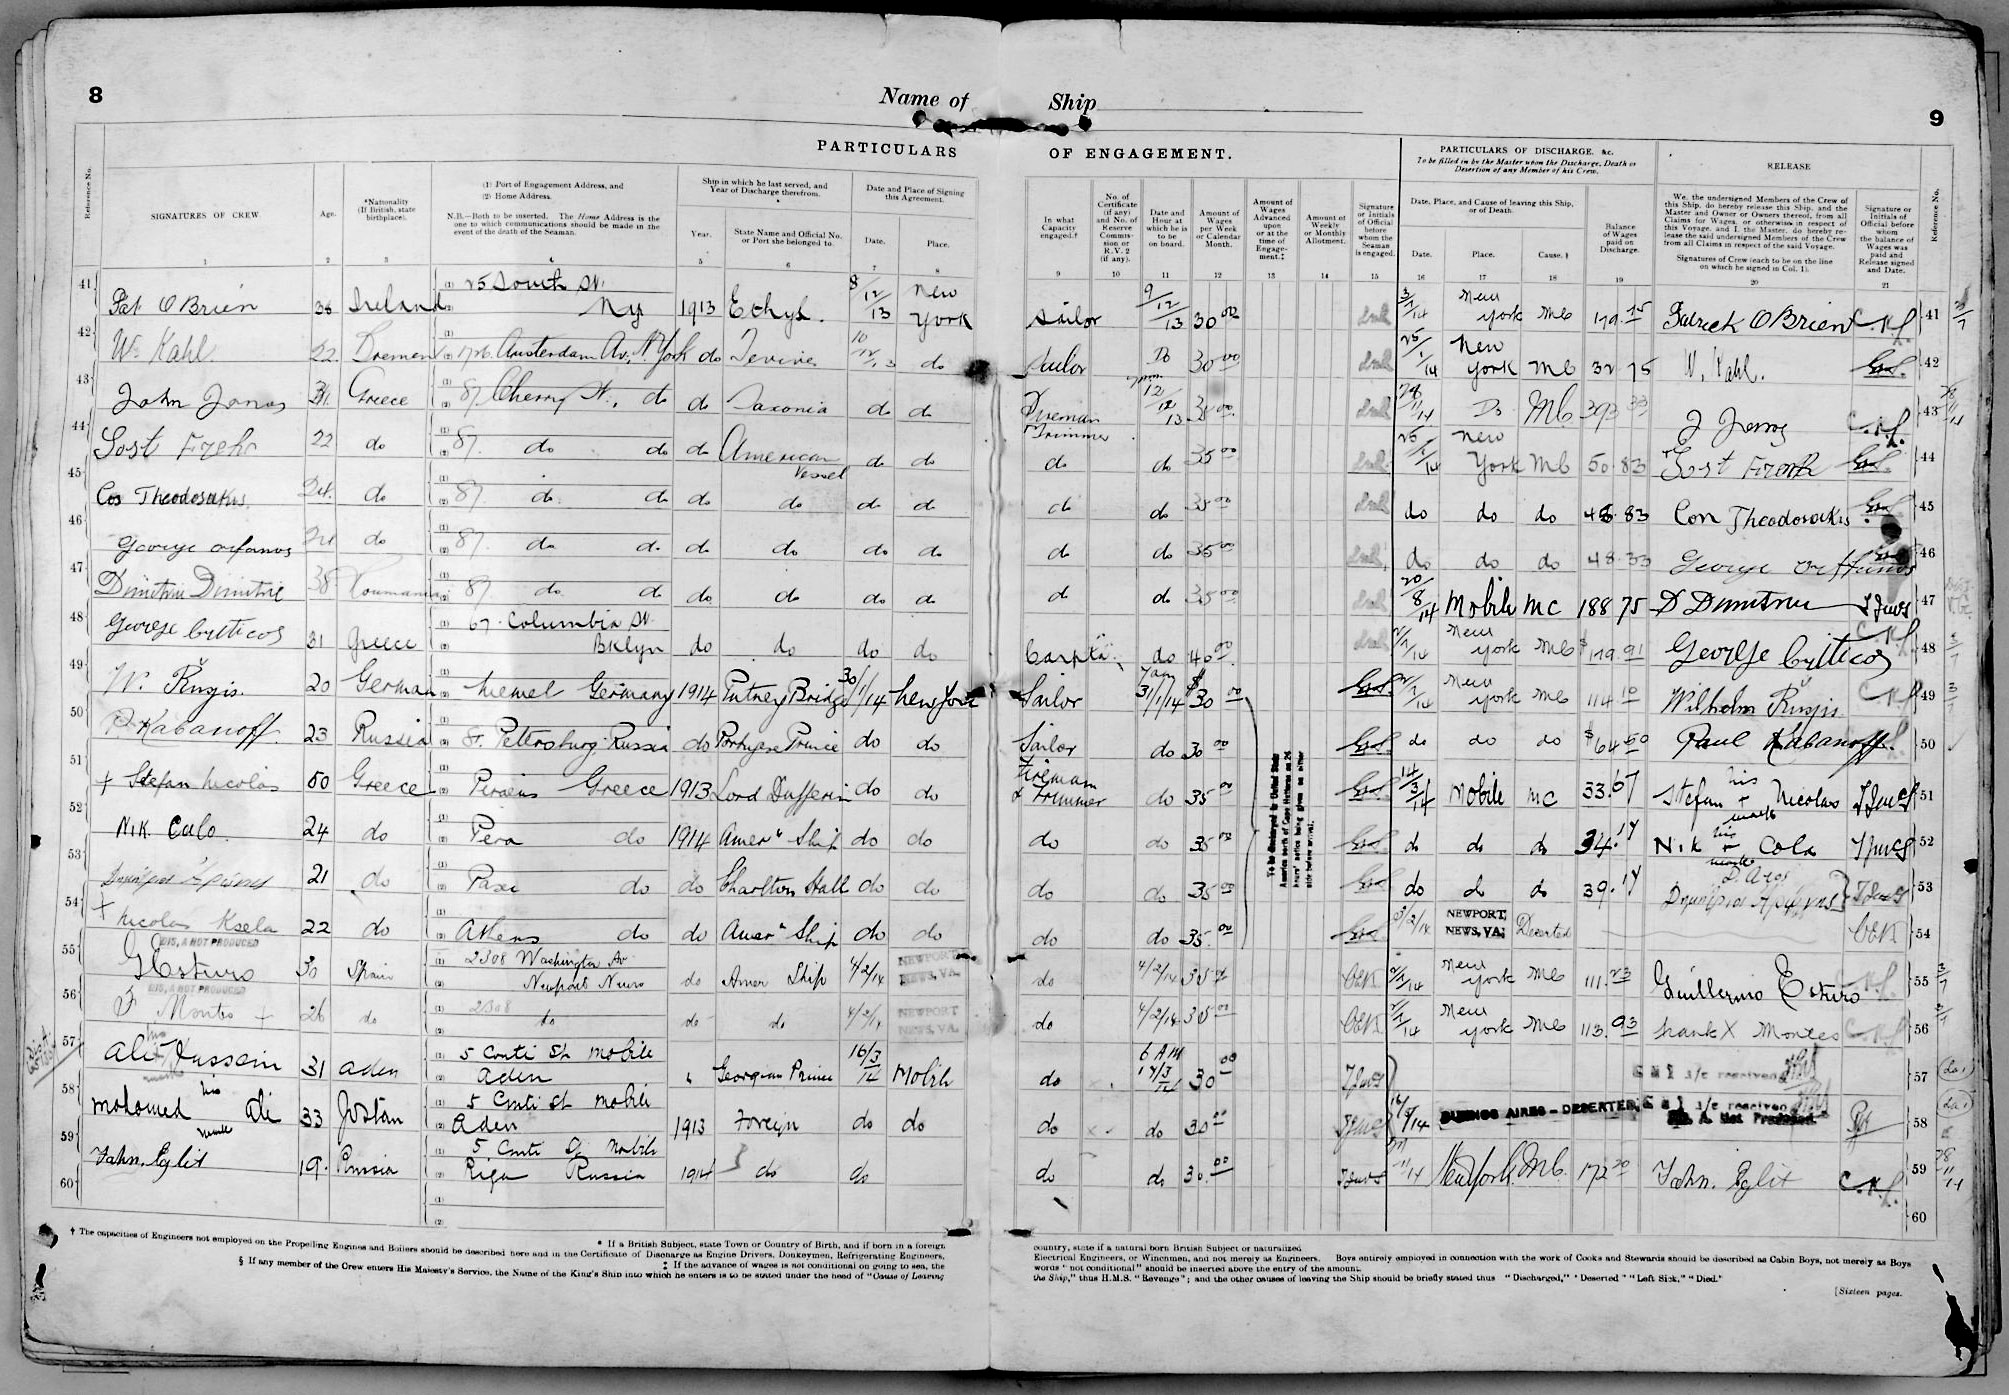 8
Name of Ship
9
PARTICULARS OF ENGAGEMENT.
PARTICULARS OF DISCHARGE, &c.
To be filled in by the Master upon the Discharge, Death or Desertion of any Member of his Crew.
RELEASE
Reference No.
SIGNATURES OF CREW
Age.
*Nationality (If British, state birthplace).
(1) Port of Engagement Address, and
(2) Home Address.
N.B.—Both to be inserted. The Home Address is the one to which communications should be made in the event of the death of the Seaman.
Ship in which he last served, and Year of Discharge therefrom.
Year.
State Name and Official No. or Port she belonged to.
Date and Place of Signing this Agreement.
Date.
Place.
In what Capacity engaged.†
No. of Certificate (if any) and No. of Reserve Commission or R.V. 2 (if any).
Date and Hour at which he is to be on board.
Amount of Wages per Week or Calendar Month.
Amount of Wages Advanced upon or at the time of Engagement.‡
Amount of Weekly or Monthly Allotment.
Signature or Initials of Official before whom the Seaman is engaged.
Date, Place, and Cause of leaving this Ship, or of Death.
Date.
Place.
Cause.§
Balance of Wages paid on Discharge.
We, the undersigned Members of the Crew of this Ship, do hereby release this Ship, and the Master and Owner or Owners thereof, from all Claims for Wages, or otherwise in respect of this Voyage, and I, the Master, do hereby release the said undersigned Members of the Crew from all Claims in respect of the said Voyage.
Signatures of Crew (each to be on the line on which he signed in Col. 1).
Signature or Initials of Official before whom the balance of Wages was paid and Release signed and Date.
Reference No.
1 2 3 4 5 6 7 8 9 10 11 12 13 14 15 16 17 18 19 20 21
41 Pat O'Brien 38 Ireland 25 South St. NY 1913 Ethyl. 8/12/13 New York Sailor 9/12/13 30 00 3/7/14 New York MC 179.75 Patrick O Brien 41
42 W Kahl 22 Bremen 1726 Amsterdam Av, N. York do 10/12/13 do Sailor Do 30 00 25/1/14 New York MC 32 75 W. Kahl. 42
43 John Jonas 31 Greece 87 Cherry St., do do Saxonia do do Fireman Trimmer 12/12/13 35 00 28/11/14 Do MC 393 33 J Jonas 43
44 Sost 22 do 87 do do do American Vessel do do do do 35 00 25/1/14 New York MC 50.83 Sost 44
45 Cos Theodosakis 24 do 87 do do do do do do do do 35 00 do do do 48.83 Con Theodosakis 45
46 George Orfanos 24 do 87 do do do do do do do do 35 00 do do do 48.33 George Orffanos 46
47 Dimitrie Dimitrie 38 Roumania 87 do do do do do do do do 35 00 20/8/14 Mobile MC 188 75 D Dimitrie 47
48 George Cytticos 31 Greece 67 Columbia St. Bklyn do do do do do 40 00 2/7/14 New York MC $179.91 George Cytticos 48
49 W. Rugis 20 German Memel Germany 1914 Putney Bridge 30/1/14 New York Sailor 7 am 31/1/14 $30 00 2/7/14 New York MC 114 10 Wilhelm Rugis 49
50 P Kabanoff 23 Russia St. Petersburg Russia do Portugese Prince do do Sailor do 30 00 do do do $64 50 Paul Kabanoff 50
51 + Stefan Nicolas 50 Greece Piraeus Greece 1913 Lord Dufferin do do Fireman & Trimmer do 35 00 14/3/14 Mobile MC 33.67 Stefan his + mark Nicolas 51
52 Nik. Colo 24 do Pera do 1914 Amern Ship do do do do 35 00 do do do 34.17 Nik his + mark Cola 52
53 21 do Paxi do do Charlton Hall do do do do 35 00 do do do 39.17 53
54 + Nicolas Ksela 22 do Athens do do Amern Ship do do do do 35. 00 NEWPORT NEWS, VA. Deserted 54
To be discharged in United States America north of Cape Hatteras on 24 hours' notice being given on either side before arrival.
DIS. A NOT PRODUCED
55 G Esturo 30 Spain 2308 Washington Av Newport News do Amer Ship 4/2/14 NEWPORT NEWS, VA. do 4/2/14 35 00 2/7/14 New York MC 111.23 Guillermo Esturo 55
DIS. A NOT PRODUCED
56 F Montes + 26 do 2308 do do do 4/2/14 NEWPORT NEWS, VA. do 4/2/14 35 00 2/7/14 New York MC 113.93 Frank X Montes 56
57 Ali his mark Hussein 31 Aden 5 Conti St Mobile Aden Georgian Prince 16/3/14 Mobile do 6 AM 17/3/14 30 00 57
58 Mohomed his mark Ali 33 5 Conti St Mobile Aden 1913 Foreign do do do do 30 00 BUENOS AIRES - DESERTED. Dis. A Not Produced 58
59 Jahn. Eglit 19. Russia 5 Conti St Mobile Riga Russia 1914 do do do do 30. 00 New York. MC. 172 20 Jahn. Eglit 59
60 60
† The capacities of Engineers not employed on the Propelling Engines and Boilers should be described here and in the Certificate of Discharge as Engine Drivers, Donkeymen, Refrigerating Engineers, Electrical Engineers, or Winchmen, and not merely as Engineers. Boys entirely employed in connection with the work of Cooks and Stewards should be described as Cabin Boys, not merely as Boys
* If a British Subject, state Town or Country of Birth, and if born in a foreign country, state if a natural born British Subject or naturalized.
‡ If the advance of wages is not conditional on going to sea, the words "not conditional" should be inserted above the entry of the amount.
§ If any member of the Crew enters His Majesty's Service, the Name of the King's Ship into which he enters is to be stated under the head of "Cause of Leaving the Ship," thus H.M.S. "Revenge"; and the other causes of leaving the Ship should be briefly stated thus "Discharged," "Deserted" "Left Sick," "Died."
[Sixteen pages.